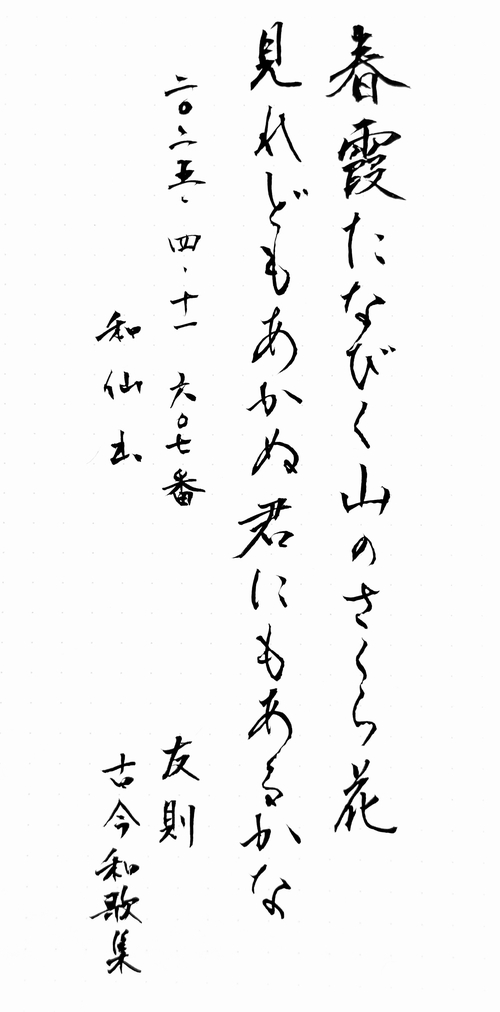 春霞たなびく山のさくら花
見れどもあかぬ君にもあるかな
二〇二五、四、十一 六〇七番
友則
和仙出
古今和歌集